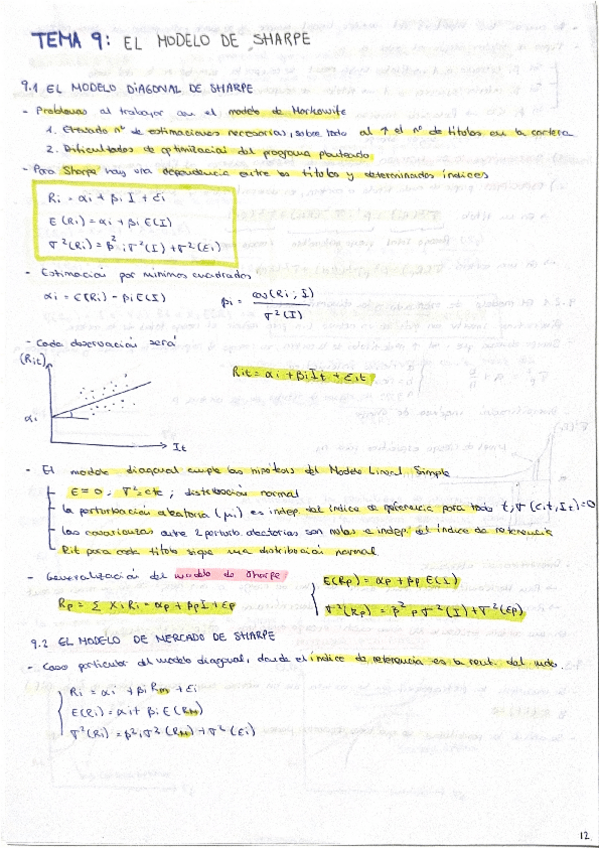 TEMA 9: EL MODELO DE SHARPE
9.1 EL MODELO DIAGONAL DE SHARPE
- Problemas al trabajar con el modelo de Markowitz
1. Elevado nº de estimaciones necesarias, sobre todo al ↑ el nº de títulos en la cartera
2. Dificultades de optimización del programa planteado
- Para Sharpe hay una dependencia entre los títulos y determinados índices
Ri = αi + βi I + εi
E(Ri) = αi + βi E(I)
σ²(Ri) = β²i σ²(I) + σ²(εi)
- Estimación por mínimos cuadrados
αi = E(Ri) - βi E(I)    βi = cov(Ri; I) / σ²(I)
- Cada observación será
(Rit)
Rit = αi + βi It + εit
αi
It
- El modelo diagonal cumple las hipótesis del Modelo Lineal Simple
E=0, σ²=cte; distribución normal
la perturbación aleatoria (μi) es indep. del índice de referencia para todo t, σ(εi,t, It)=0
Las covarianzas entre 2 perturb. aleatorias son nulas e indep. del índice de referencia
Rit para cada título sigue una distribución normal
- Generalización del modelo de Sharpe
E(Rp) = αp + βp E(I)
Rp = Σ Xi Ri = αp + βp I + εp
σ²(Rp) = β²p σ²(I) + σ²(εp)
9.2 EL MODELO DE MERCADO DE SHARPE
- Caso particular del modelo diagonal, donde el índice de referencia es la rent. del mdo.
Ri = αi + βi RM + εi
E(Ri) = αi + βi E(RM)
σ²(Ri) = β²i σ²(RM) + σ²(εi)
12